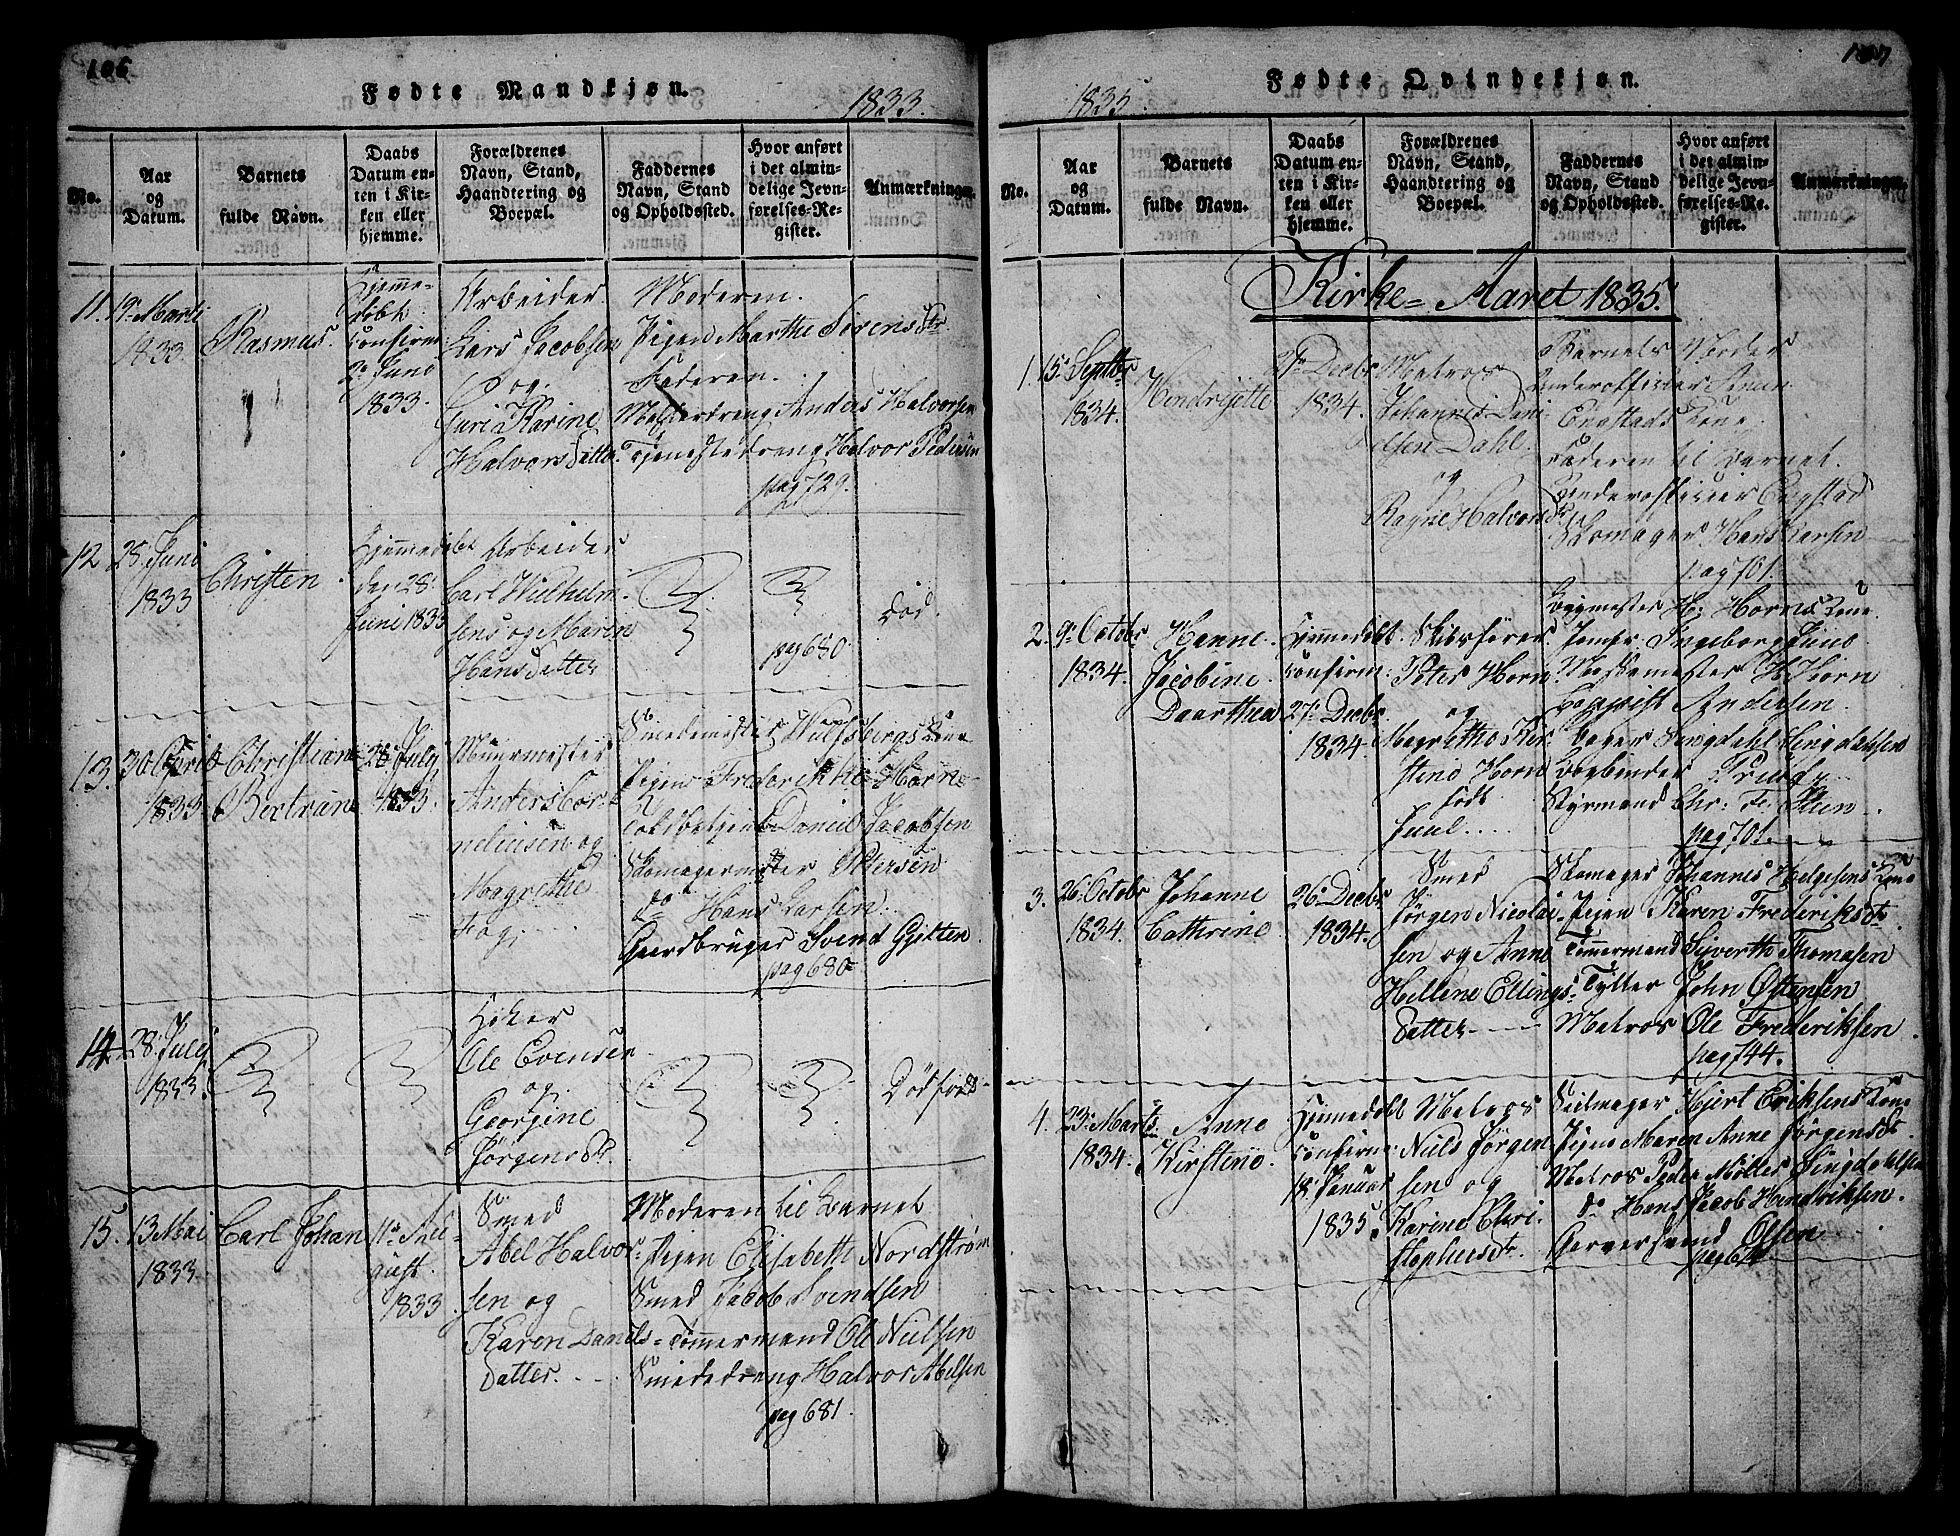 106
Fødte Mandkjøn.
1833.
No.
Aar
og
Datum.
Barnets
fulde Navn.
Daabs
Datum en-
ten i Kir-
ken eller
hjemme.
Forældrenes
Navn, Stand,
Haandtering og
Boepæl.
Faddernes
Navn, Stand
og Opholdssted.
Hvor anført
i det almin-
delige Jevn-
førelses-Re-
gister.
Anmærkninger.
11.
19de Marti
1833.
Rasmus.
Hjemme-
døbt.
Confirm:
2de Juno
1833.
Arbeider
Lars Jacobsen
og
Guri Karine
Halvors Datter.
Moderen.
Pigen Marthe Sörens Dtr
Faderen.
Anders Halvorsen
Tjenestedreng Halvor Pedersen
pag 729.
12
28. Juni
1833
Christen
Hjemmedøbt
den 28.
Juni 1833
Arbeider
Carl Wilhelm-
sens og Maren
Hans Datter
pag 680.
Død.
13.
30 April
1833
Christian
Bertrane
28. July
1833.
Muurmester
Anders Cor-
neliusen og
Magrethe
Fog.
Smedemester Wulfsbergs Kone
Pigen Frederikke Horne
Toldbetjent Daniel Jacobsen
Skomagermester Pettersen
do Hans Larsen
Gaardbruger Svend Gjitten
pag 680
14
28. July
1833.
Høker
Ole Evensen
og
Georgine
Jørgens Dtr.
Dødfød
15.
13 Mai
1833
Carl Johan
11te Au-
gust
1833.
Smed
Abel Halvor-
sen og
Karen Daniels-
Datter.
Moderen til Barnet
Pigen Elisabeth Nordstrøm
Smed Jacob Svendsen
Tømmermand Ole Nielsen
Smededreng Halvor Abelsen
pag 681.
107
Fødte Qvindekjøn.
1835.
No.
Aar
og
Datum.
Barnets
fulde Navn.
Daabs
Datum en-
ten i Kir-
ken eller
hjemme.
Forældrenes
Navn, Stand,
Haandtering og
Boepæl.
Faddernes
Navn, Stand
og Opholdssted.
Hvor anført
i det almin-
delige Jevn-
førelses-Re-
gister.
Anmærkninger.
Kirke-Aaret 1835.
1.
15. Septbr
1834.
Hendrijette
Decbr
1834.
Matros
Johannes Dani-
elsen Dahl.
og
Ragne Halvors Dtr
Barnets Moder
Underofficier
Engstads Kone
Faderen til Barnet.
Underofficier Engstad
Skomager Hans Larsen
pag 701.
2.
9de Octobr
1834.
Hanne
Jacobine
Daarthea
Hjemmedøbt.
Confirm:
27de Decbr
1834.
Skibsfører
Peter Horn
og
Magrethe Kir-
stene Horn
født
Juul
Bygmester H: Horns Kone
Jomfr: Ingeborg Juul
H: Horn
Andersen
Bager Lingdahl Lingdahlsen
Bogbinder
Styrmand Chr: Fr:
pag 701.
3.
26. Octobr
1834.
Johanne
Cathrine
26. Decbr
1834.
Smed
Jørgen Nicolai-
sen og Anne
Hellene Ellings-
Datter
Skomager Johannes Helgesens Kone
Pigen Karen Frederiks Dtr
Tømmermand Sivverth Thomasen
Tytter John Ostensen
Matros Ole Frederiksen
pag 744.
4.
23. Marts
1834.
Anne
Kirstene.
Hjemmedøbt
Confirm:
18. Januar
1835
Matros
Niels Jørgen
sen og
Karine Chri-
stophersdtr.
Seilmager Hjert Eriksens Kone
Pigen Maren Anne Jørgensdtr.
Matros Peder Möller Lingdahlsen
do Hans Jacob Hendriksen.
Garversvend Olsen